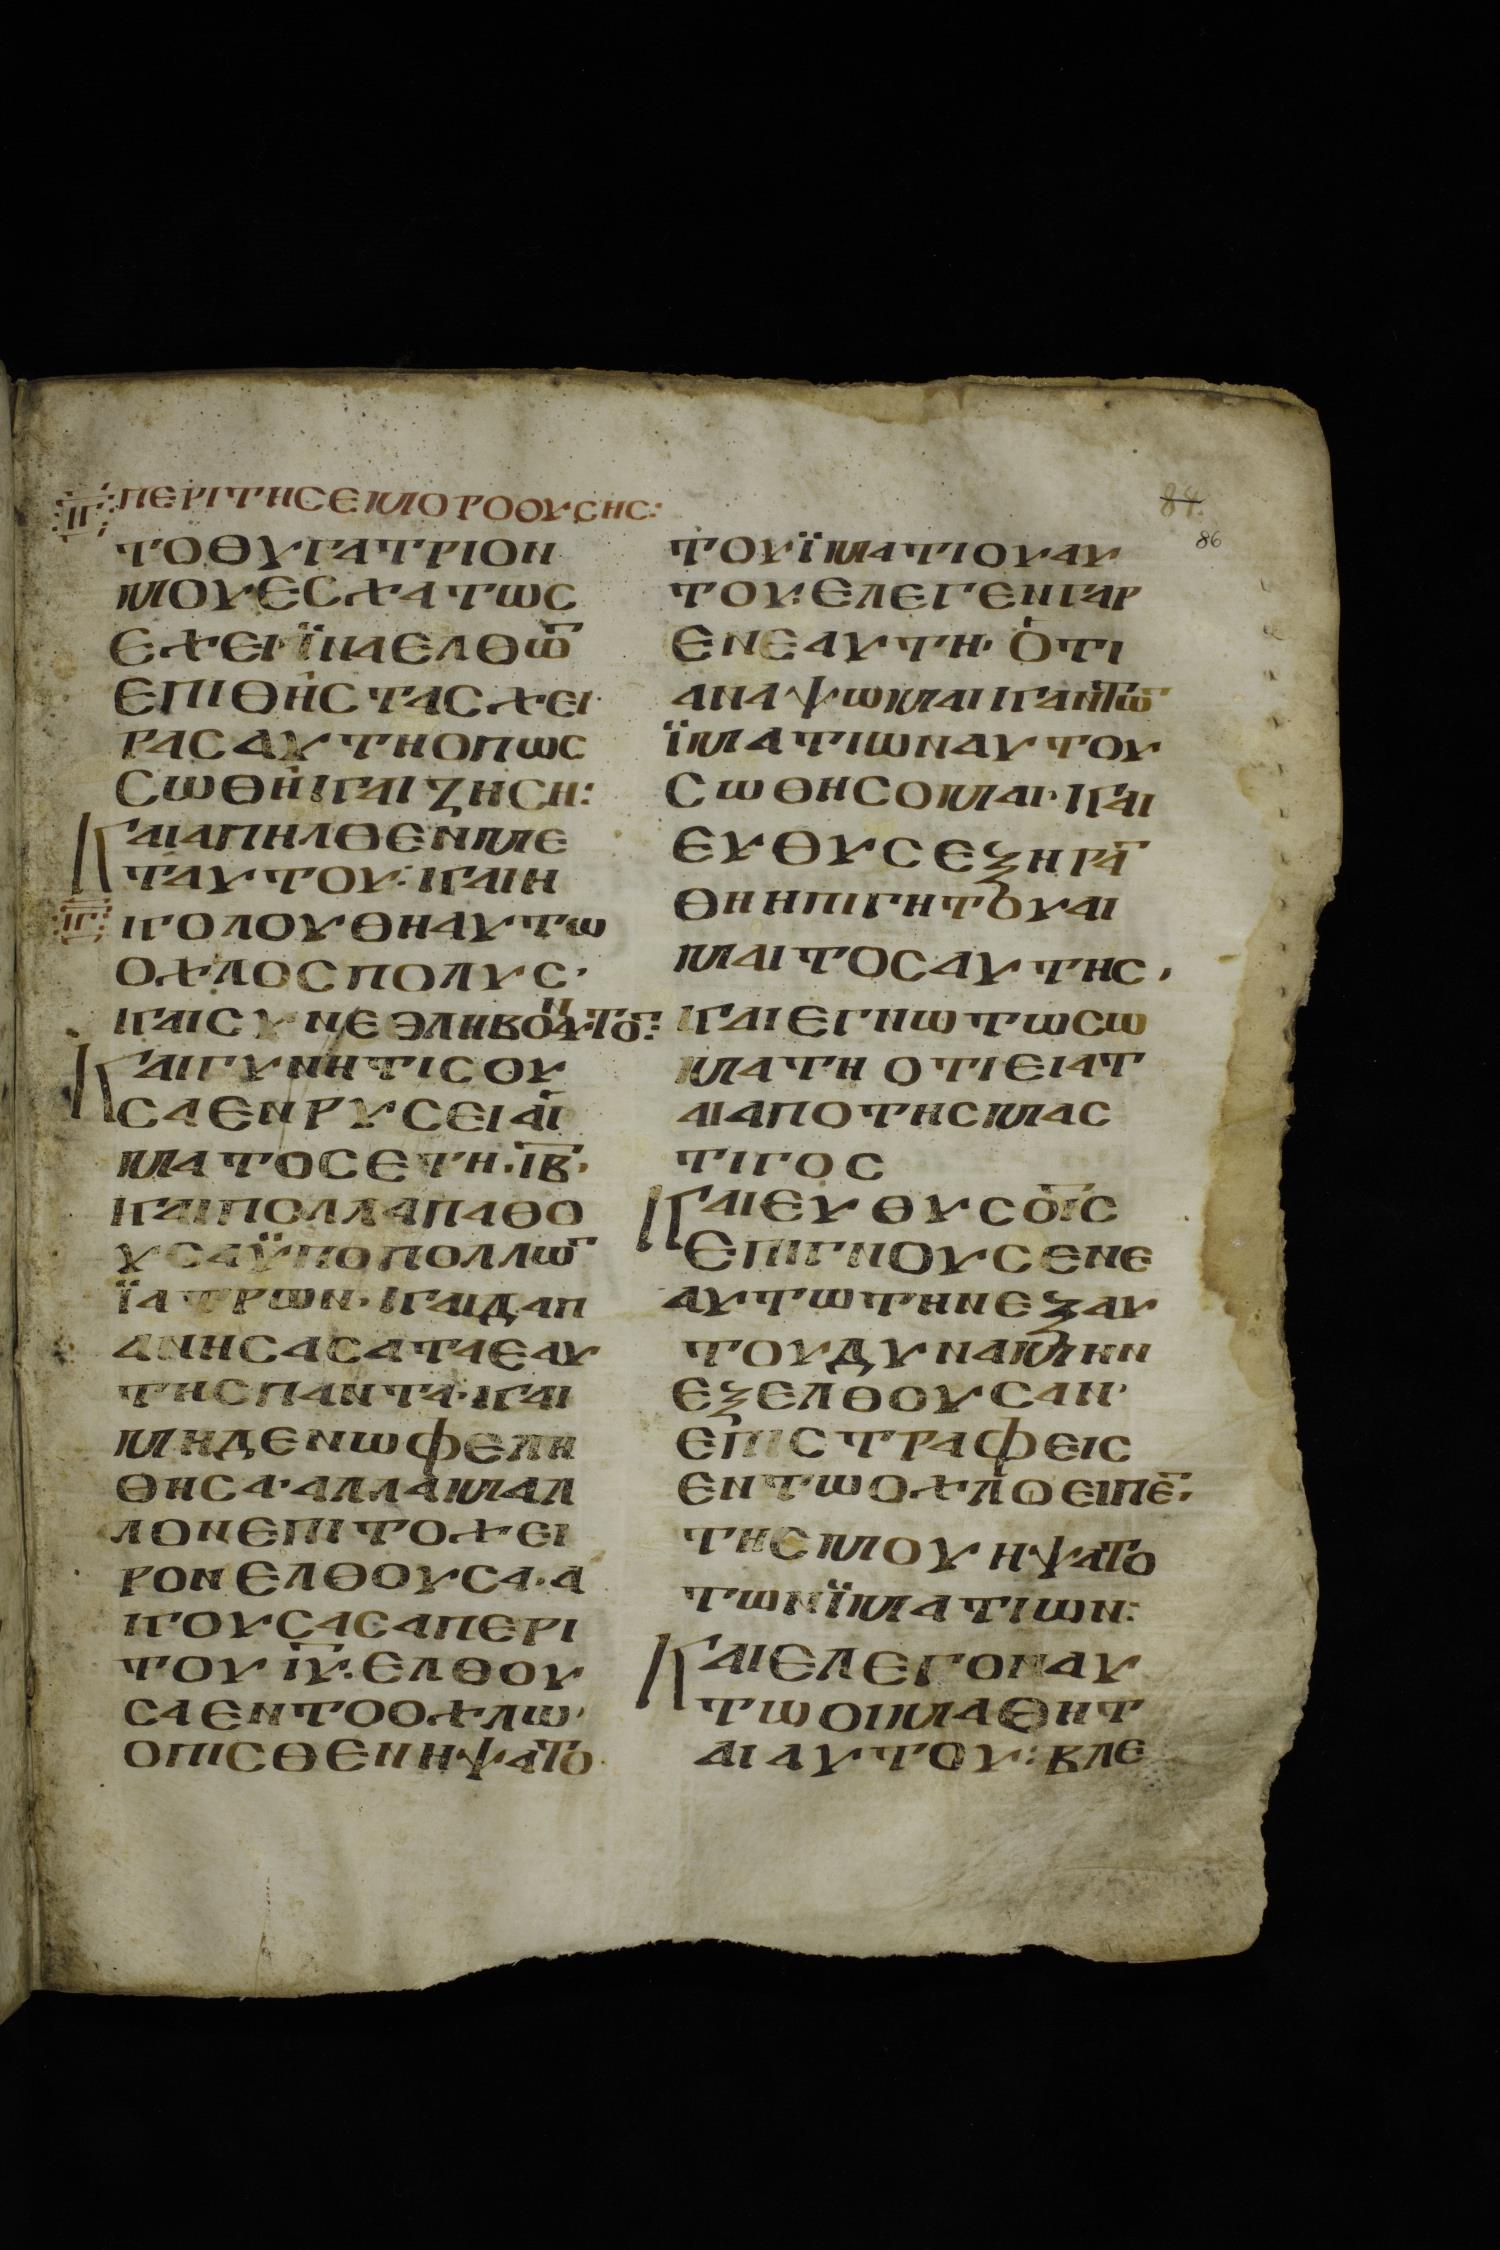 ΙΓ ΠΕΡΙΤΗСΕΜΟΡΟΟΥСΗС:
84.
86
ΤΟΘΥΓΑΤΡΙΟΝ
ΜΟΥΕСΧΑΤωС
ΕΧΕΙ·ΪΝΑΕΛΘω̅
ΕΠΙΘΗСΤΑСΧΕΙ
ΡΑСΑΥΤΗΟΠωС
СωΘΗΚΑΙΖΗСΗ:
ΚΑΙΑΠΗΛΘΕΝΜΕ
ΤΑΥΤΟΥ:ΚΑΙΗ
ΙΓ ΚΟΛΟΥΘΗΑΥΤω
ΟΧΛΟСΠΟΛΥС·
ΚΑΙСΥΝΕΘΛΗΒΟΝΑΥΤΟ̅:
ΚΑΙΓΥΝΗΤΙСΟΥ
СΑΕΝΡΥСΕΙΑΪ
ΜΑΤΟСΕΤΗ·Ι̅Β̅·
ΚΑΙΠΟΛΛΑΠΑΘΟ
ΥСΑΫΠΟΠΟΛΛω̅
ΪΑΤΡωΝ·ΚΑΙΔΑΠ
ΑΝΗСΑСΑΤΑΕΑΥ
ΤΗСΠΑΝΤΑ·ΚΑΙ
ΜΗΔΕΝωΦΕΛΗ
ΘΗСΑ·ΑΛΛΑΜΑΛ
ΛΟΝΕΠΙΤΟΧΕΙ
ΡΟΝΕΛΘΟΥСΑ·Α
ΚΟΥСΑСΑΠΕΡΙ
ΤΟΥΙ̅Υ̅·ΕΛΘΟΥ
СΑΕΝΤΟΟΧΛω·
ΟΠΙСΘΕΝΗΨΑΤΟ
ΤΟΥΪΜΑΤΙΟΥΑΥ
ΤΟΥ:ΕΛΕΓΕΝΓΑΡ
ΕΝΕΑΥΤΗ·ΟΤΙ
ΑΝΑΨωΜΑΙΚΑΝΤω̅
ΪΜΑΤΙωΝΑΥΤΟΥ
СωΘΗСΟΜΑΙ·ΚΑΙ
ΕΥΘΥСΕΞΗΡΑ̅
ΘΗΗΠΙΓΗΤΟΥΑΙ
ΜΑΙΤΟСΑΥΤΗС·
ΚΑΙΕΓΝωΤωСω
ΜΑΤΗΟΤΙΕΙΑΤ
ΑΙΑΠΟΤΗСΜΑС
ΤΙΓΟС
ΚΑΙΕΥΘΥСΟΙ̅С̅
ΕΠΙΓΝΟΥСΕΝΕ
ΑΥΤωΤΗΝΕΞΑΥ
ΤΟΥΔΥΝΑΜΗΝ
ΕΞΕΛΘΟΥСΑΝ·
ΕΠΙСΤΡΑΦΕΙС
ΕΝΤωΟΧΛΟΕΙΠΕ̅·
ΤΗСΜΟΥΗΨΑΤΟ
ΤωΝΪΜΑΤΙωΝ:
ΚΑΙΕΛΕΓΟΝΑΥ
ΤωΟΙΜΑΘΗΤ
ΑΙΑΥΤΟΥ:ΒΛΕ